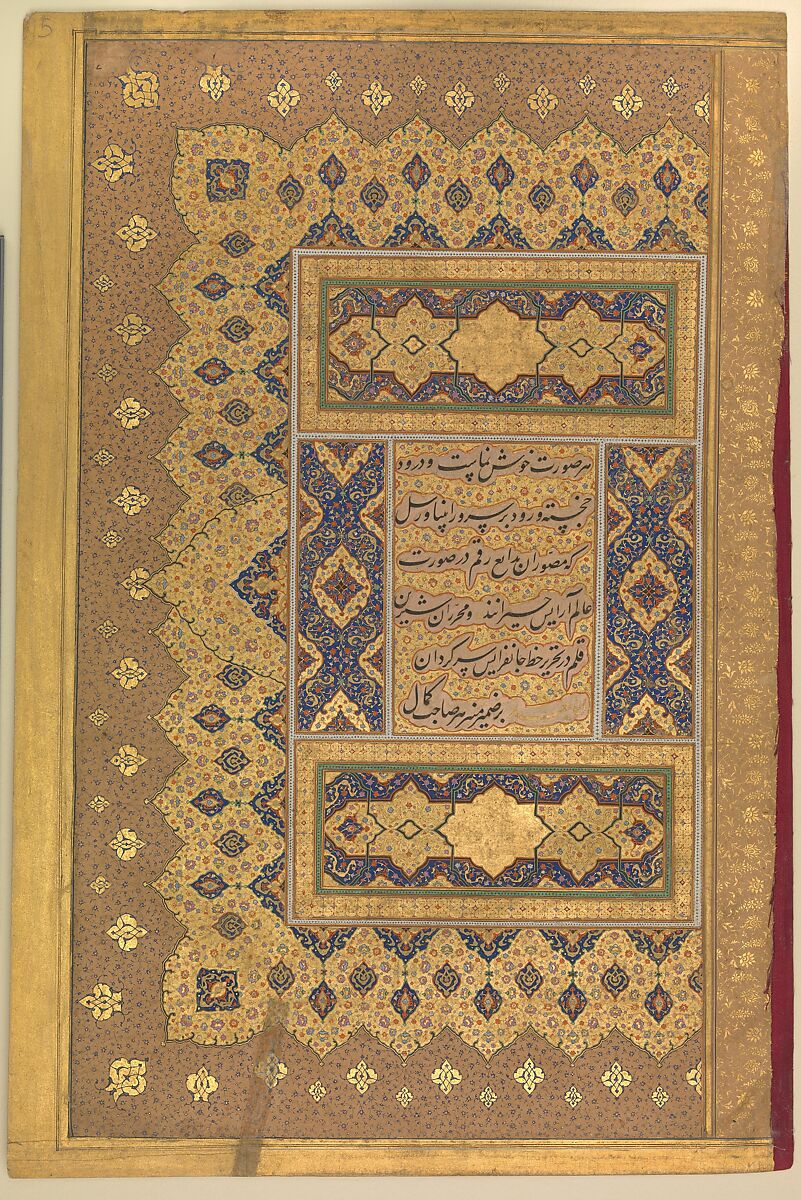 5
هر صورت خوش نماست و درود
خجسته ورود بر سرور انبیا و رسل
که مصوران بدایع رقم در صورت
عالم آرایش حیرانند و محرران شیرین
قلم در تحریر خط جانفزایش سرگردان
بر ضمیر منیر هر صاحب کمال